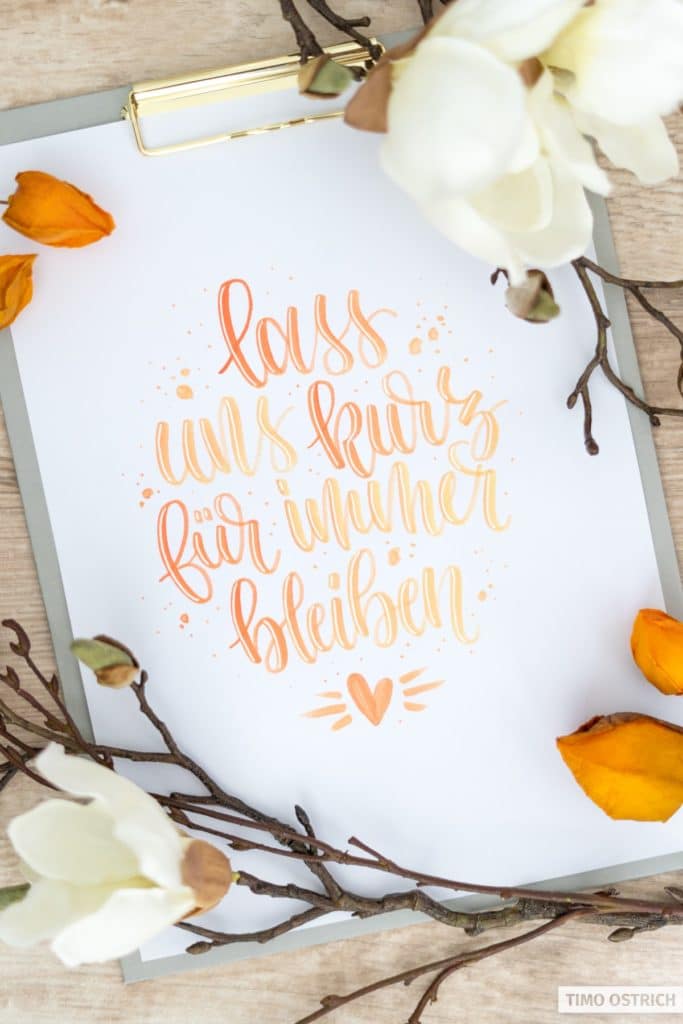 lass
uns kurz
für immer
bleiben
TIMO OSTRICH